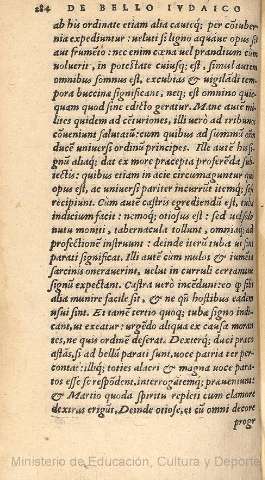 284 DE BELLO IVDAICO
ab his ordinate etiam alia cauicq; per cõtuber
nia expediuntur: ueluti si ligno aquaue opus sit
aut frumẽto: nec enim cœna uel prandium cũm
uoluerit, in potestate cuiusq; est, simul autem
omnibus somnus est, excubias & uigiliãdi tem
pora buccina significant, neq; est omnino quic-
quam quod sine edicto geratur. Mane autẽ mi-
lites quidem ad cẽturiones, illi uerò ad tribunos
cõueniunt salutatũ: cum quibus ad summũ om̃
ducẽ uniuersi ordinũ principes. Ille autẽ his si-
gnũ aliaq; dat ex more præcepta proferẽda sub
iectis: quibus etiam in acie circumaguntur quã
opus est, ac uniuersi pariter incurrũt itemq; se
recipiunt. Cum autẽ castris egrediendũ est, tuba
indicium facit: nemoq; otiosus est: sed uel sub
nutu moniti, tabernacula tollunt, omniaq; ad
profectionẽ instruunt: deinde iterũ tuba ut sint
parati significat. Illi autẽ cum mulos & iumẽta
sarcinis onerauerint, uelut in curruli certamine
signũ expectant. Castra uerò incẽdunt: eo q̃ sibi
alia munire facile sit, & ne q̃ hostibus eadem
usui sint. Et tamẽ tertio quoq; tubæ signo indi-
cant, ut exeatur: urgẽdo aliqua ex causa moran
tes, ne quis ordinẽ deserat. Dexterq; duci præco
astãs, si ad bellũ parati sunt, uoce patria ter per-
contat: illiq; toties alacri & magna uoce para-
tos esse se respõdent, interrogãtemq; præueniunt:
& Martio quodã spiritu repleti cum clamore
dextras erigũt. Deinde otiose, et cũ omni decore
progr
Ministerio de Educación, Cultura y Deporte